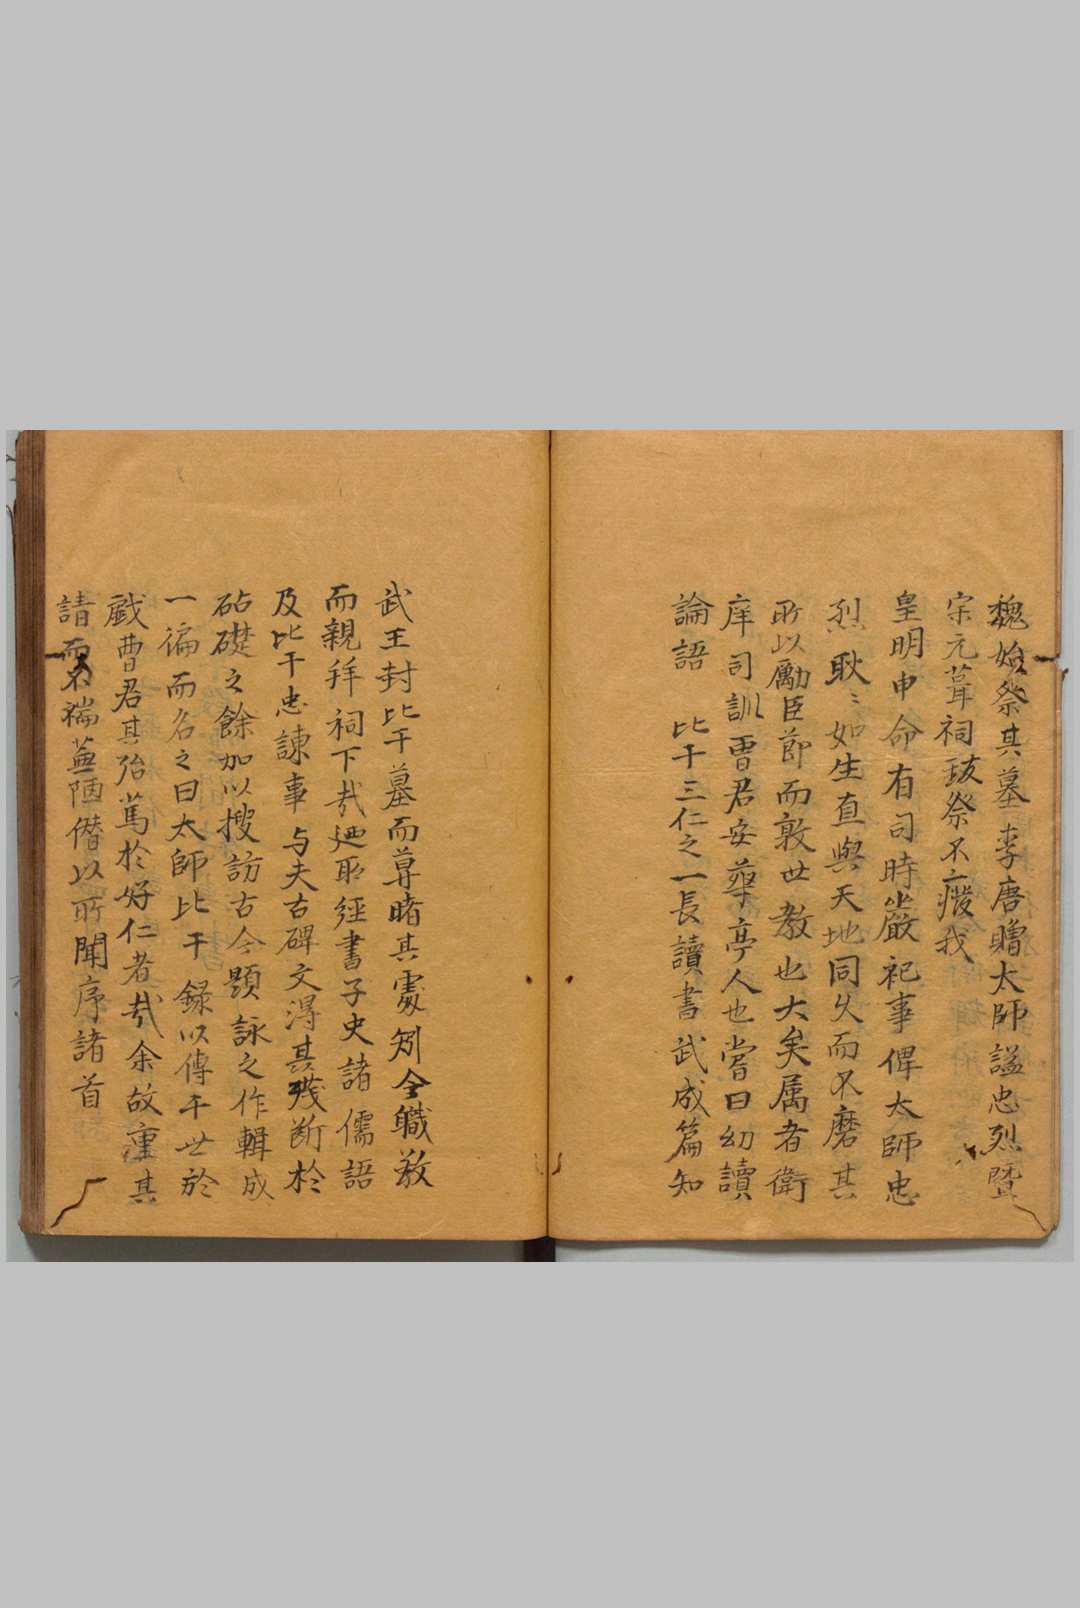 魏始祭其墓李唐贈太師謚忠烈曁
宋元葺祠致祭不癈我
皇明申命有司時嚴祀事俾太師忠
烈耿〻如生直與天地同久而不磨其
所以勵臣節而敦世教也大矣属者衛
庠司訓曹君安華亭人也嘗曰幼讀
論語 比干三仁之一長讀書武成篇知
武王封比干墓而尊睹其處矧今職教
而親拜祠下哉廼取經書子史諸儒語
及比干忠諫事与夫古碑文淂其殘断於
砧礎之餘加以搜訪古今題詠之作輯成
一徧而名之曰太師比干録以傳于世於
戯曹君其殆篤於好仁者哉余故重其
請而不揣蕪陋僭以所聞序諸首